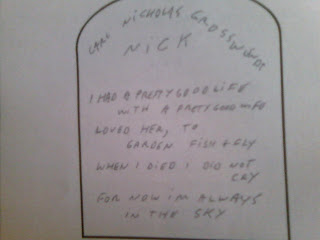 CARL NICHOLAS GROSSWENDT
NICK
I HAD A PRETTY GOOD LIFE
WITH A PRETTY GOOD WIFE
LOVED HER, TO
GARDEN FISH + FLY
WHEN I DIED I DID NOT
CRY
FOR NOW I'M ALWAYS
IN THE SKY